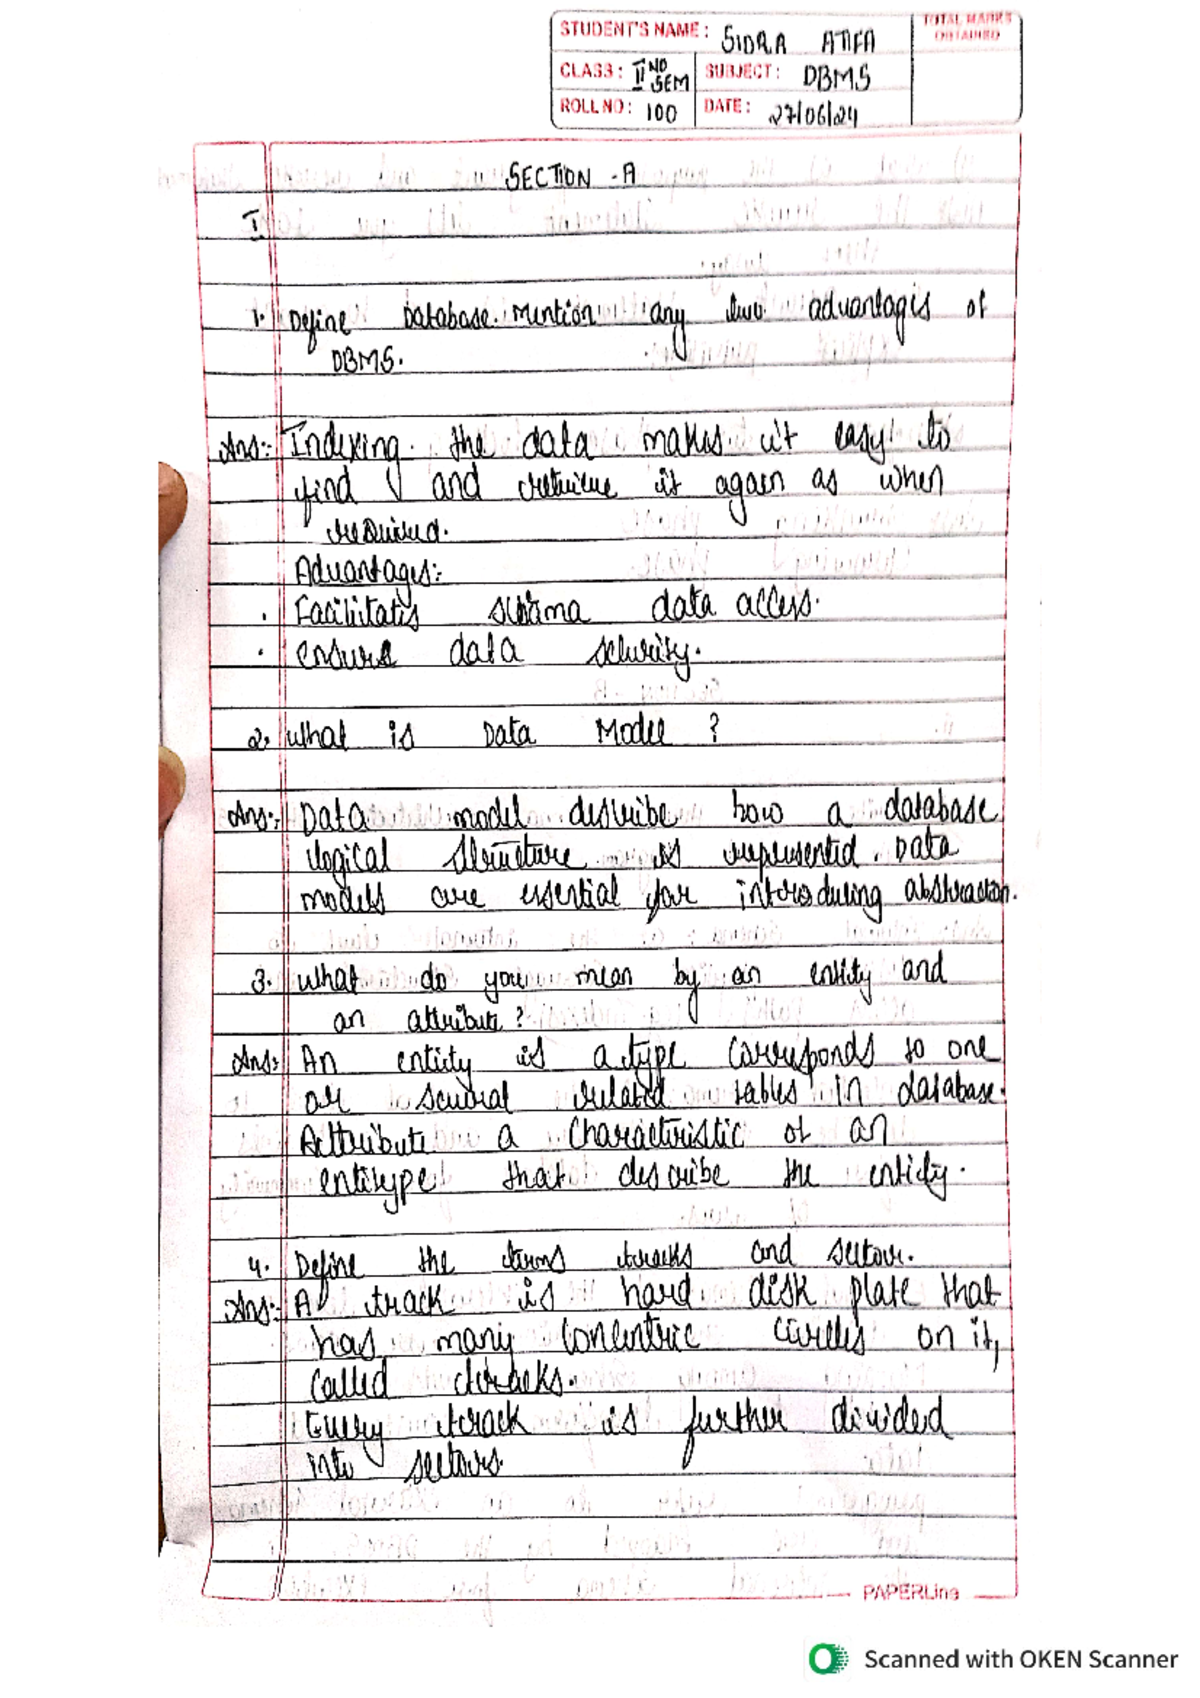 STUDENT'S NAME: SIDRA ATIFA
TOTAL MARKS OBTAINED
CLASS: II ND SEM SUBJECT: DBMS
ROLL NO: 100 DATE: 27/06/24
SECTION - A
I.
1. Define Database. Mention any two advantages of
DBMS.
Ans:- Indexing the data makes it easy to
find and retrieve it again as when
required.
Advantages:-
· Facilitates schema data access.
· ensure data security.
2. What is Data Model ?
Ans:- Data model describe how a database
logical structure is represented. Data
models are essential for introducing abstraction.
3. What do you mean by an entity and
an attribute ?
Ans:- An entity is a type corresponds to one
or several related tables in database.
Attribute a characteristic of an
entitype that describe the entity.
4. Define the terms tracks and sector.
Ans:- A track is hard disk plate that
has many concentric circles on it,
called tracks.
Every track is further divided
into sectors.
PAPERLine
Scanned with OKEN Scanner